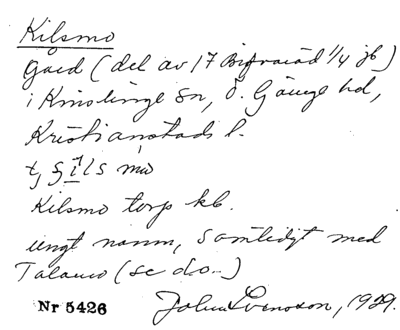 Kilsmo
gård (del av 17 Bjfvaröd 1/4 jb)
i Knislinge sn, Ö. Göinge hd,
Kristianstads l.
Kilsmo torp kb.
ungt namn, samtidigt med
(se d:o.)
Nr 5426 Johan Svensson, 1929.